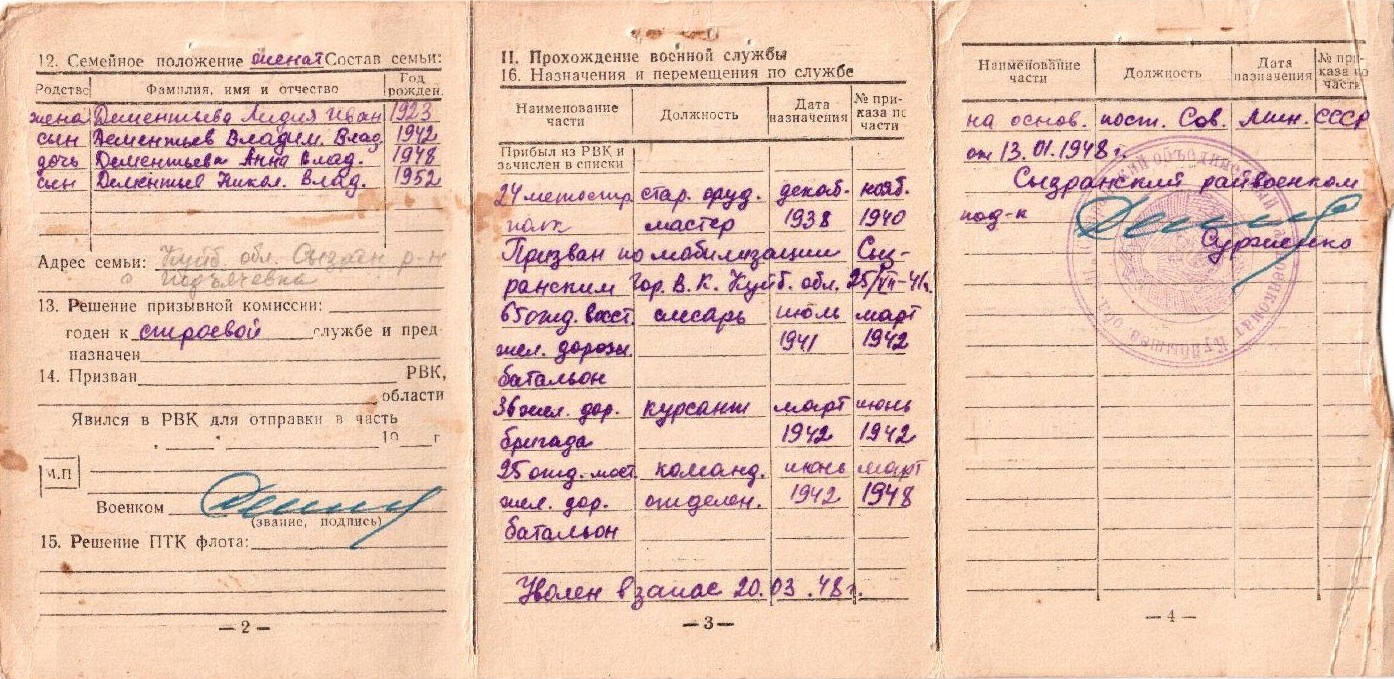 12. Семейное положение женат Состав семьи:
Родство Фамилия, имя и отчество Год рожден.
жена Дементьева Лидия Иван 1923
сын Дементьев Владим. Влад. 1942
дочь Дементьева Анна Влад. 1948
сын Дементьев Никол. Влад. 1952
Адрес семьи: Куйб. обл. Сызран р-н
13. Решение призывной комиссии:
годен к строевой службе и пред-
назначен
14. Призван РВК,
области
Явился в РВК для отправки в часть
19 г
М.П
Военком
(звание, подпись)
15. Решение ПТК флота:
— 2 —
II. Прохождение военной службы
16. Назначения и перемещения по службе
Наименование части Должность Дата назначения № при-каза по части
Прибыл из РВК и
зачислен в списки
24 стар. оруд. декаб. нояб.
полк мастер 1938 1940
Призван по мобилизации Сыз-
ранским Гор. В. К. Куйб. обл. 25/VII-41г.
65 отд. восст. слесарь июль март
жел. дорожн. 1941 1942
батальон
36 жел. дор. курсант март июнь
бригада 1942 1942
25 отд. мост. команд. июнь март
жел. дор. отделен. 1942 1948
батальон
Уволен в запас 20.03.48г.
— 3 —
Наименование части Должность Дата назначения № при-каза по части
на основ. пост. Сов. Мин. СССР
от 13.01.1948 г.
Сызранский райвоенком
под-к
Сурженко
— 4 —